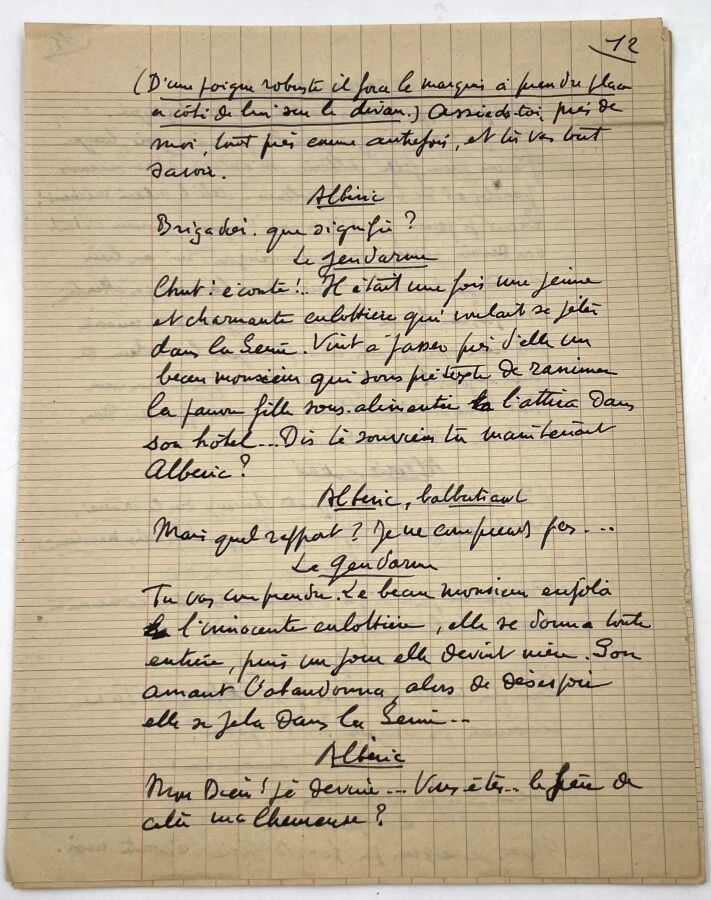 12
(D'une poigne robuste il force le marquis à prendre place
à côté de lui sur le divan.) Assieds-toi, près de
moi, tout près comme autrefois, et tu vas tout
savoir.
Albéric
Brigadier. que signifie ?
Le gendarme
Chut ! écoute !.. Il était une fois une jeune
et charmante culottière qui voulait se jeter
dans la Seine. Vint à passer près d'elle un
beau monsieur qui sous prétexte de ranimer
la pauvre fille sous-alimentée l'attira dans
son hôtel... Dis te souviens tu maintenant
Albéric ?
Albéric, balbutiant
Mais quel rapport ? Je ne comprends pas ...
Le gendarme
Tu vas comprendre. Le beau monsieur enjôla
l'innocente culottière, elle se donna toute
entière, puis un jour elle devint mère. Son
amant l'abandonna, alors de désespoir
elle se jeta dans la Seine...
Albéric
Mon Dieu ! je devine ... Vous êtes.. le frère de
cette malheureuse ?